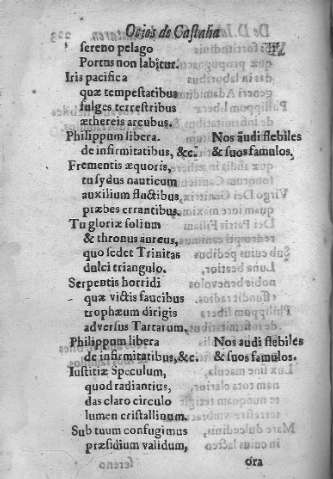 Ocios de Castalia
sereno pelago
Portus non labitur.
Iris pacifica
quæ tempestatibus
fulges terrestribus
æthereis arcubus.
Philippum libera. Nos audi flebiles
de infirmitatibus, &c. & suos famulos.
Frementis æquoris,
tu sydus nauticum
auxilium fluctibus
præbes errantibus.
Tu gloriæ solium
& thronus aureus,
quo sedet Trinitas
dulci triangulo.
Serpentis horridi
quæ victis faucibus
trophæum dirigis
adversus Tartarum.
Philippum libera Nos audi flebiles
de infirmitatibus, &c. & suos famulos.
Iustitiæ Speculum,
quod radiantius,
das claro circulo
lumen cristallinum.
Sub tuum confugimus
præsidium validum,
ora